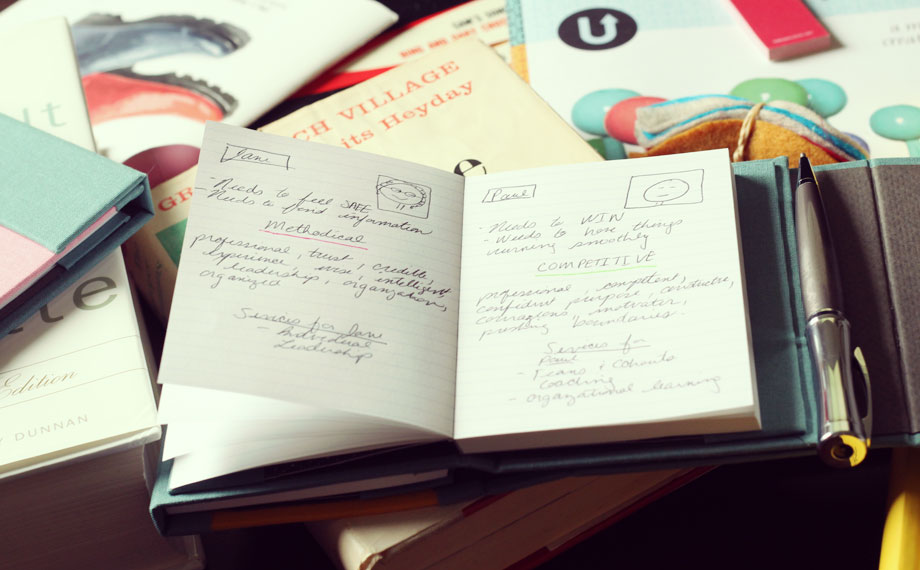 CH VILLAGE
its Heyday
U
lt
te
Edition
Y DUNNAN
Jane
- Needs to feel SAFE
- Needs to find information
Methodical
professional, trust, credible,
experience, wise, intelligent,
leadership, organization,
organized
Services for Jane
- Individual
Leadership
Paul
- Needs to WIN
- Needs to have things
running smoothly
COMPETITIVE
professional, competent,
confident, purpose, conductor,
courageous, motivator,
pushing boundaries.
Services for
Paul
- Teams + Cohorts
Coaching
- orgazational learning